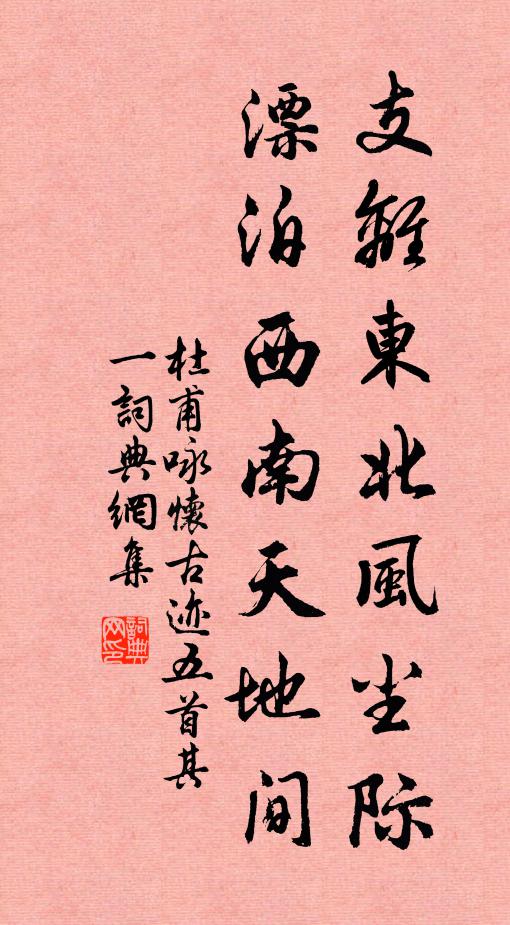 支離東北風尘际
漂泊西南天地间
杜甫咏懷古迹五首其
一詞典網集
詞典网印